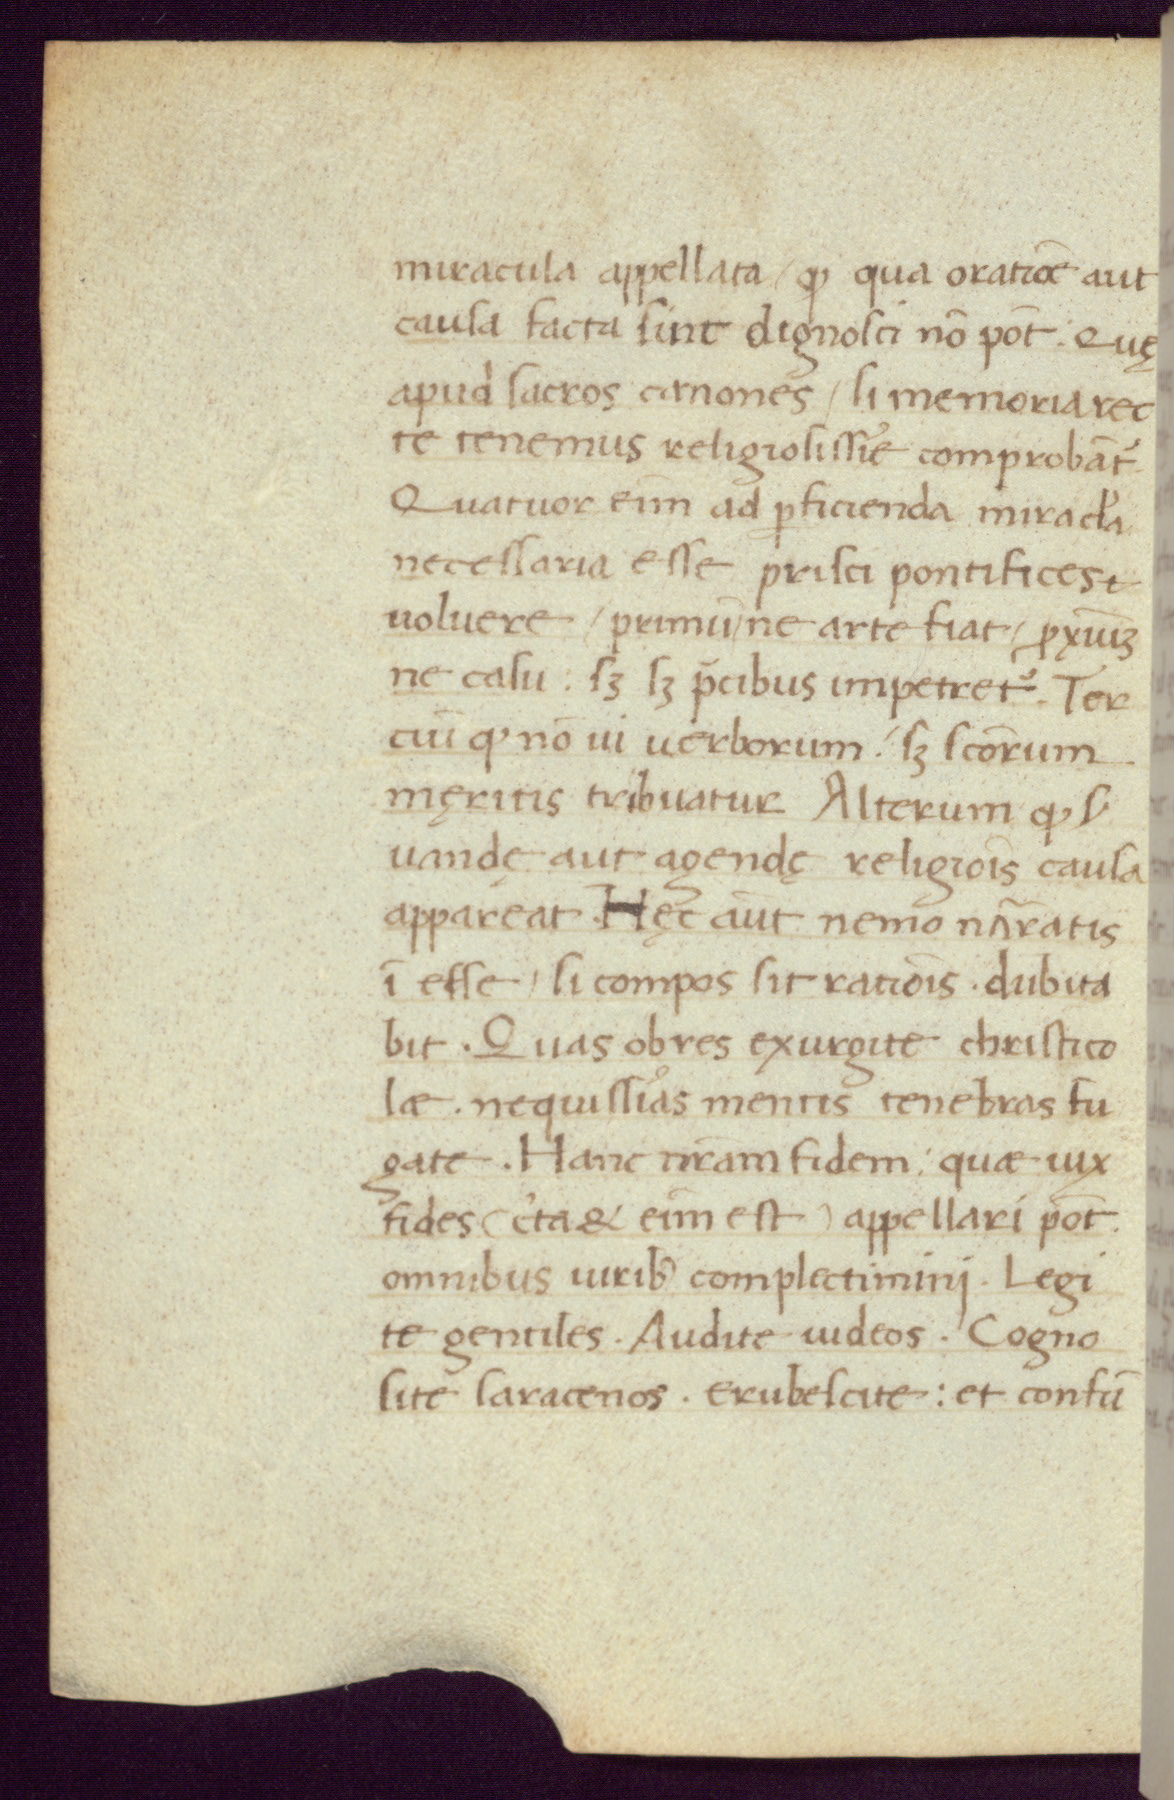 miracula appellata / ꝙ qua oratiōe aut
causa facta sint dignosci nō pōt. Quę
apud sacros canones / si memoria rec
te tenemus religiosissīe comprobāt᷑
Quatuor eīm ad ꝑficienda miracl̓a
necessaria esse prisci pontifices
uoluere / primū / ne arte fiat / ꝓxīuꝫ
ne casu. sꝫ sꝫ p̄cibus impetret᷑. Ter
ciū ꝙ nō ui uerborum / sꝫ scōrum
męritis tribuatur Alterum ꝙ s̓
uandę aut agendę religiōis causa
appareat. Hęc aūt nemo nārratis
ī esse / si compos sit ratiōis. dubita
bit. Quas ob res exurgite christico
læ. nequissīas mentis tenebras fu
gate. Hanc nr̄am fidem: quæ uix
fides (c̓ta & eīm est) appellari pōt.
omnibus uirib᷒ complectiminj. Legi
te gentiles. Audite iudeos. Cogno
site saracenos. erubescite: et confū